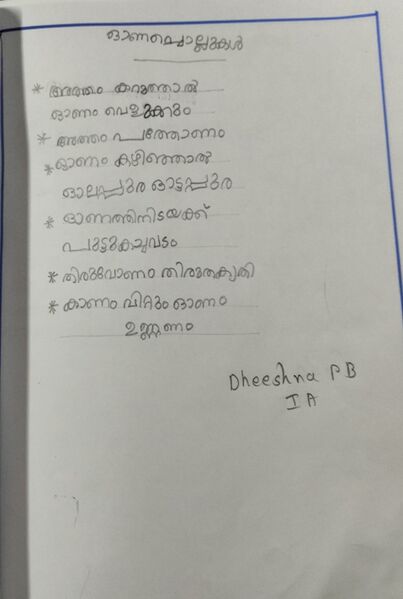 ഓണച്ചൊല്ലുകൾ
* അത്തം കറുത്താൽ
ഓണം വെളുക്കും
* അത്തം പത്തോണം
* ഓണം കഴിഞ്ഞാൽ
ഓലപ്പുര ഓട്ടപ്പുര
* ഓണത്തിനിടയക്ക്
പുട്ടുകച്ചവടം
* തിരുവോണം തിരുതകൃതി
* കാണം വിറ്റും ഓണം
ഉണ്ണണം
Dheeshna P B
I A